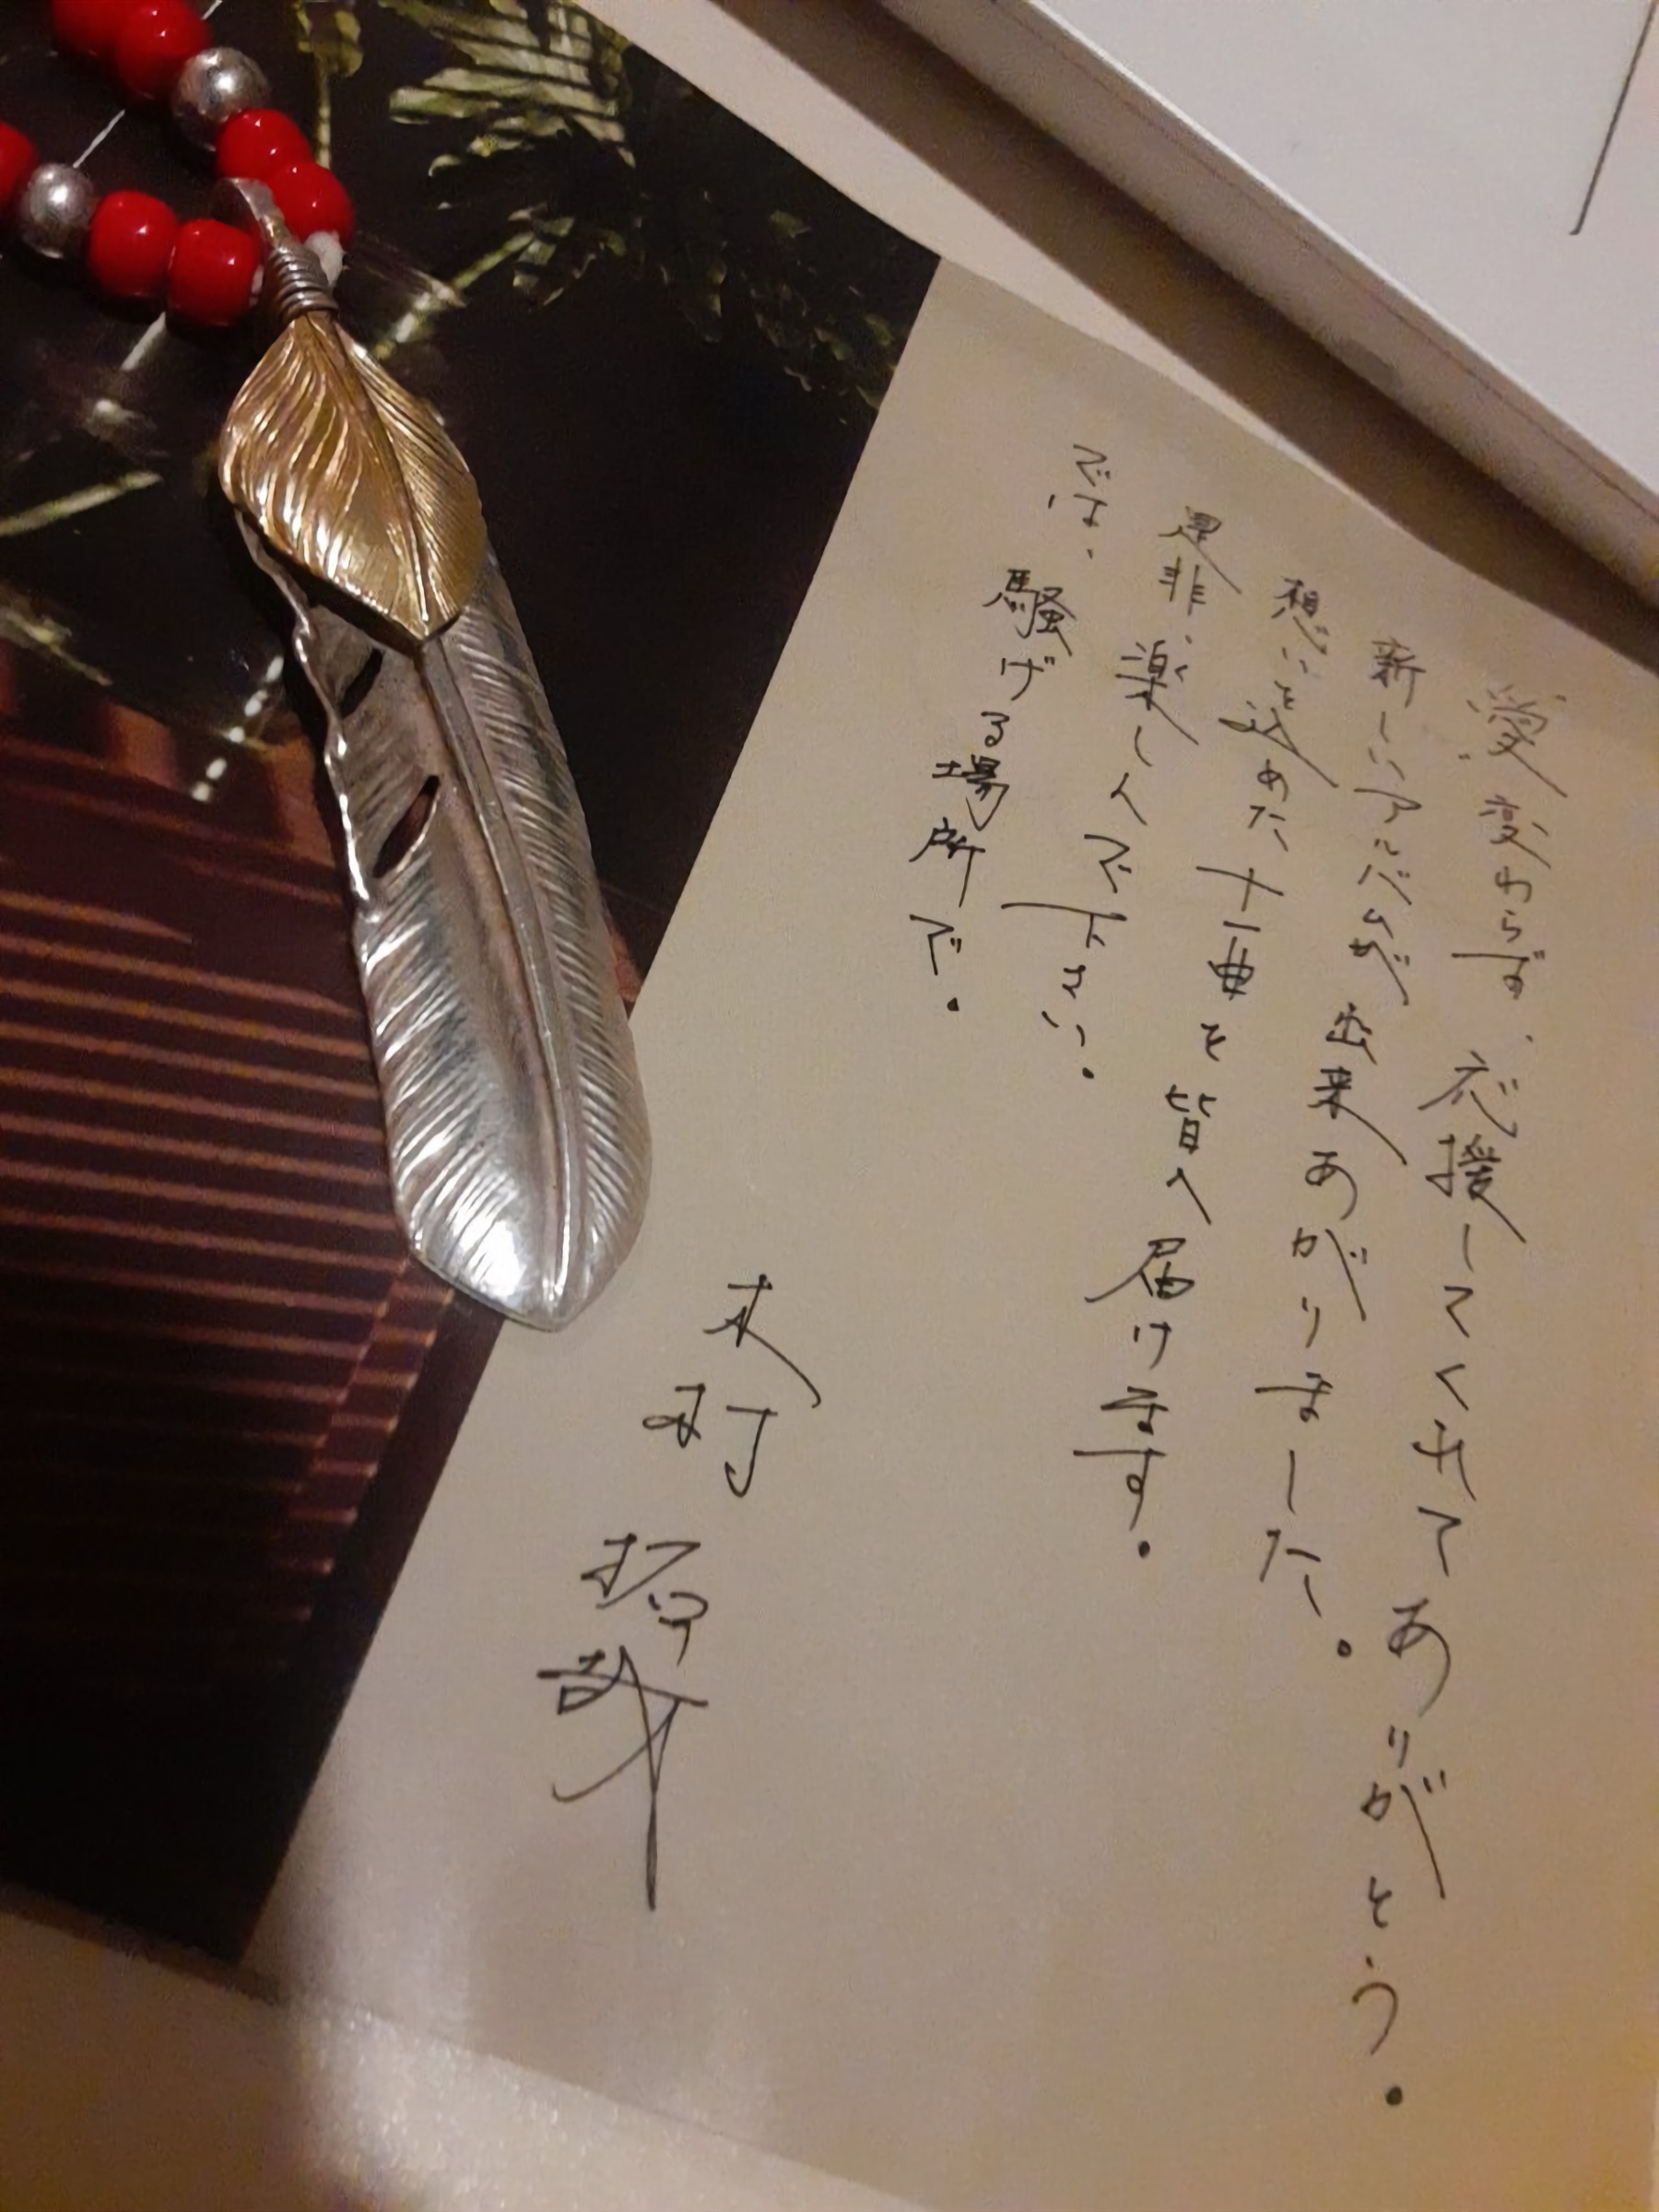 愛変わらず、応援してくれてありがとう。
新しいアルバムが出来あがりました。
想いを込めた十一曲を皆へ届けます。
是非、楽しんで下さい。
では、騒げる場所で。
木村拓哉